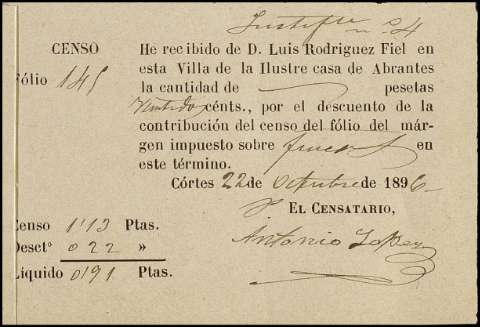 Justifte nº 4
CENSO
Fólio 145
He recibido de D. Luis Rodriguez Fiel en
esta Villa de la Ilustre casa de Abrantes
la cantidad de pesetas
Veintidos cénts., por el descuento de la
contribución del censo del fólio del már-
gen impuesto sobre en
este término.
Córtes 22 de Octubre de 1896
EL CENSATARIO,
Antonio Lopez
Censo 1'13 Ptas.
Desctº 0 22 »
Líquido 0'91 Ptas.